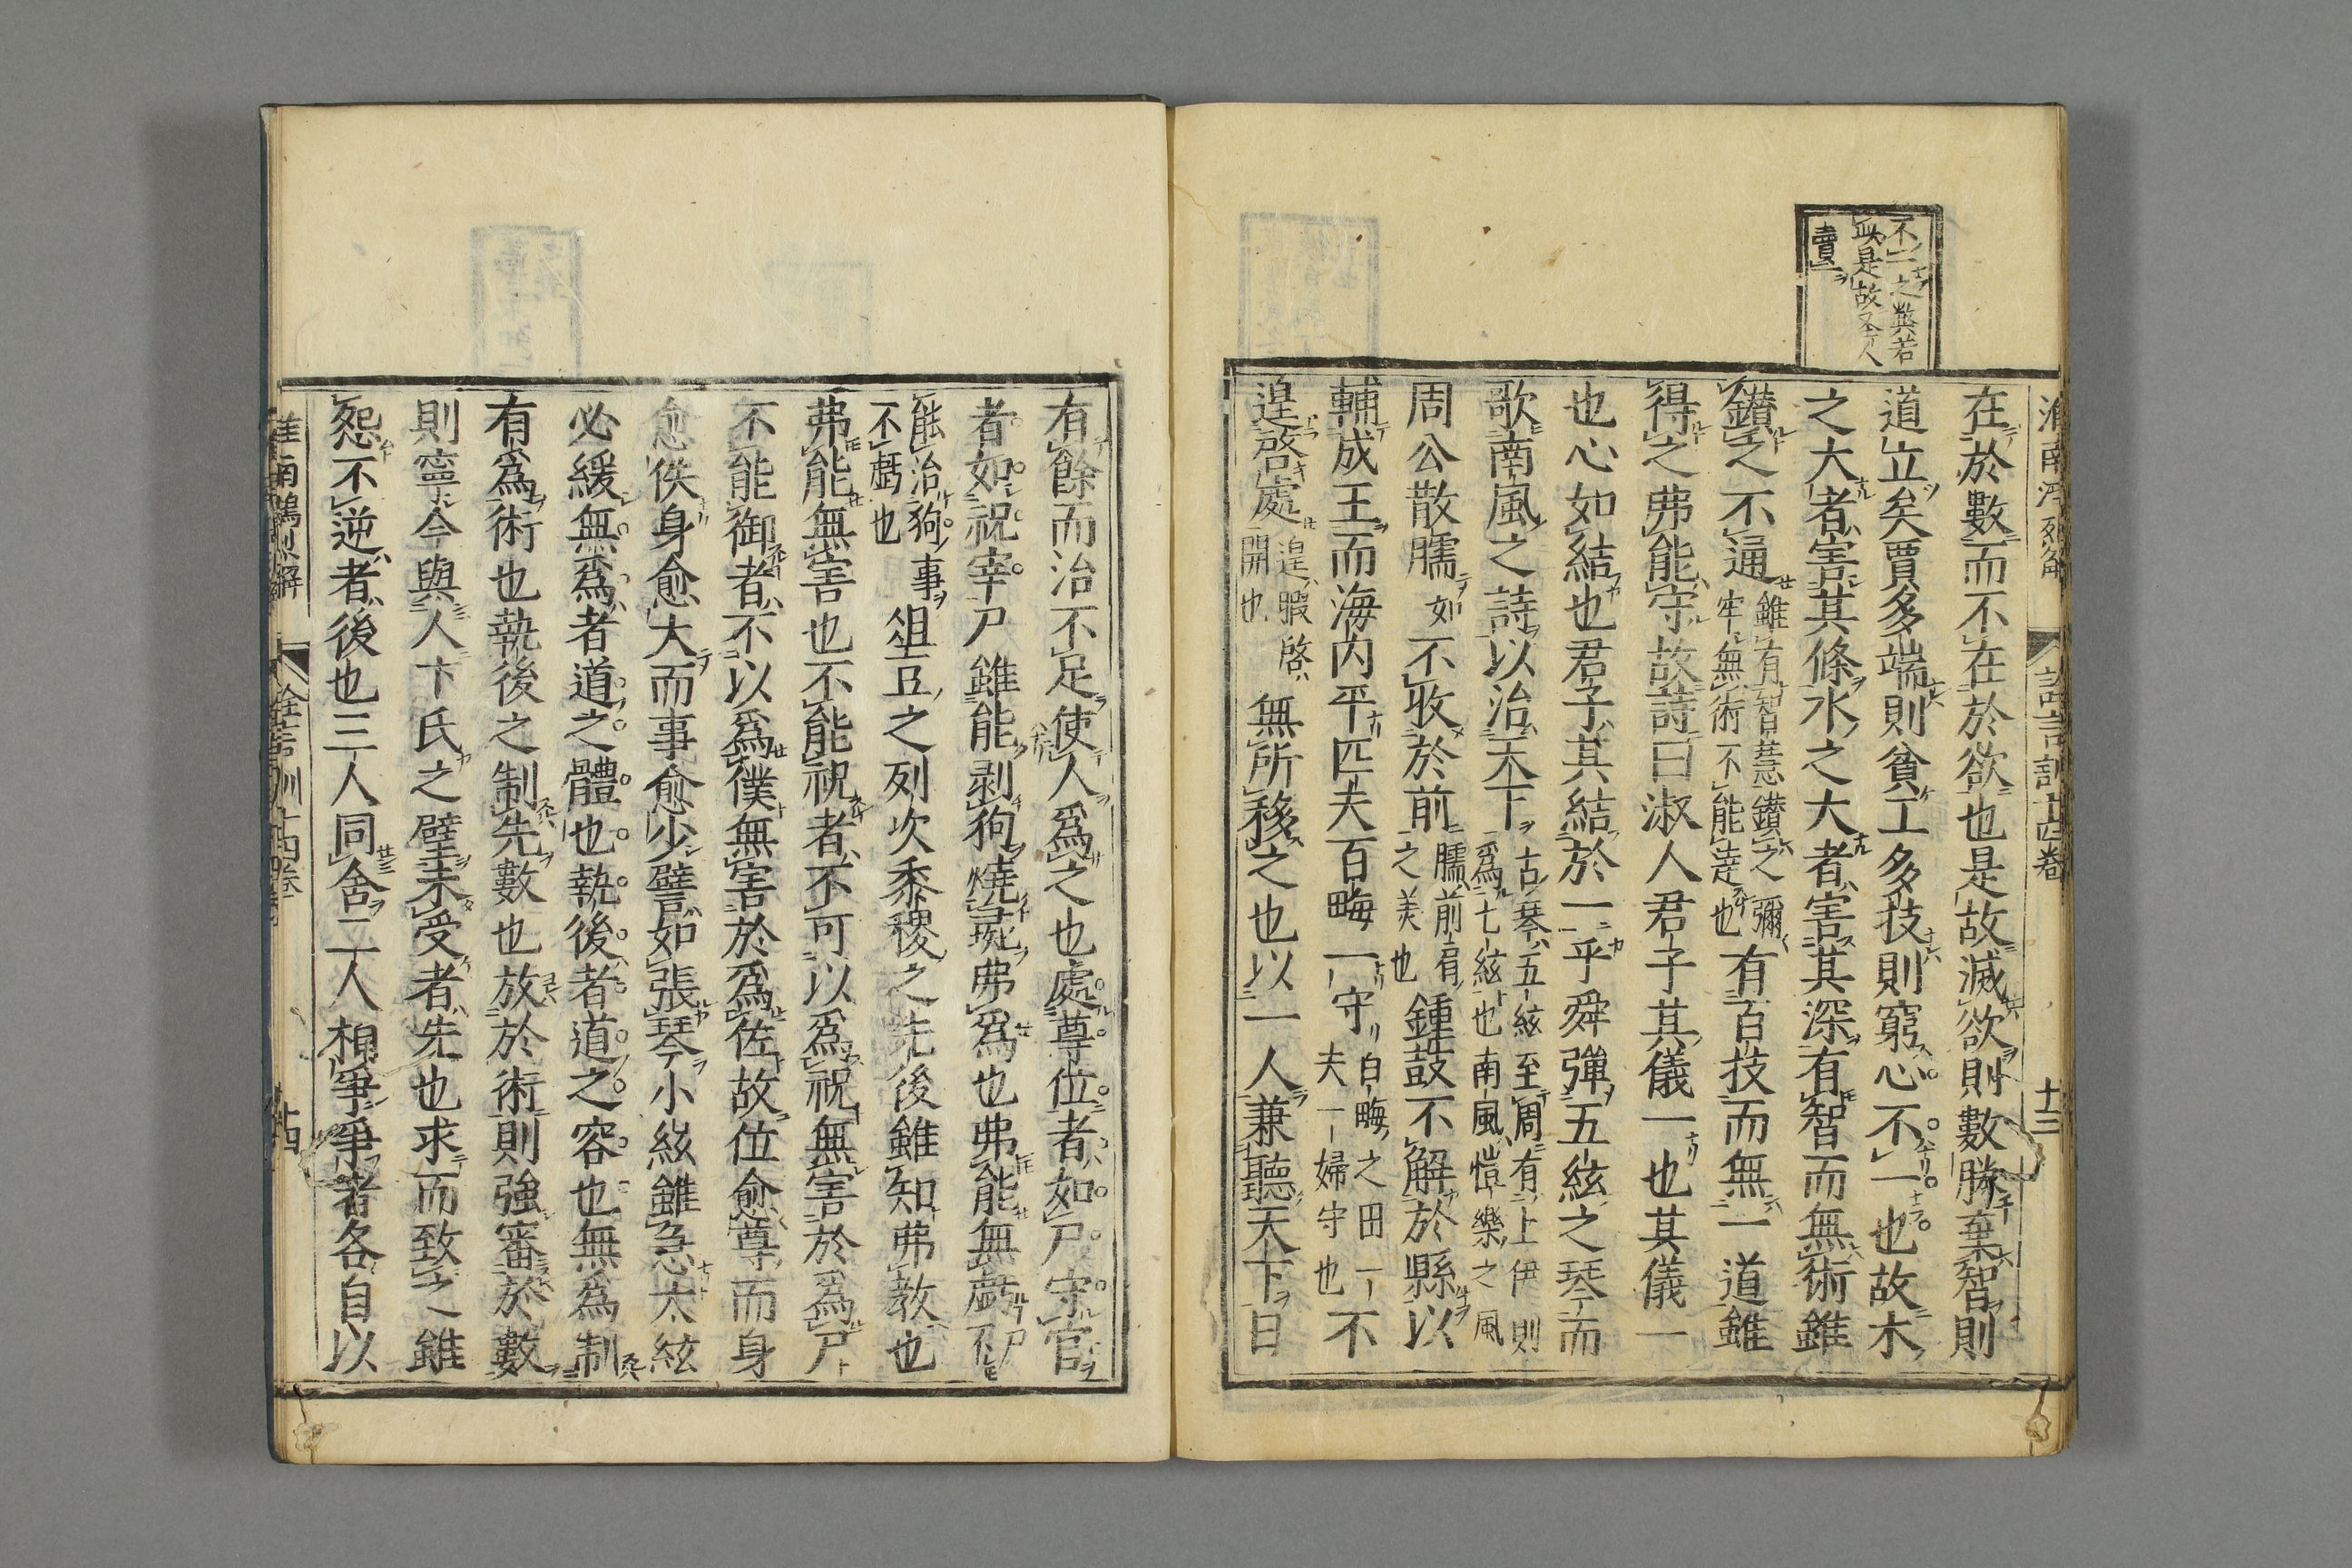 不一之弊若
無是故聖人
賣一
淮南鴻烈解 詮言訓十四卷 十三
在於數而不在於欲也是故滅欲則數勝棄智則
道立矣賈多端則貧工多技則窮心不一也故木
之大者害其條水之大者害其深有智而無術雖
鑽之不通雖有智慧鑽之彌牢無術不能達也有百技而無一道雖
得之弗能守故詩曰淑人君子其儀一也其儀一
也心如結也君子其結於一乎舜彈五絃之琴而
歌南風之詩以治天下古琴五絃至周有七絃上伊則為七絃也南風愷樂之風
周公散臑如不收於前臑前肩之美也鍾鼓不解於縣以
輔成王而海内平匹夫百畮一守百畮之田一夫一婦守也不
遑啓處遑暇啓開也無所移之也以一人兼聽天下日
有餘而治不足使人爲之也處尊位者如尸守官
者如祝宰尸雖能剥狗燒彘弗爲也弗能無虧尸不
能治狗事不虧也俎豆之列次黍稷之先後雖知弗教也
弗能無害也不能祝者不可以爲祝無害於爲尸
不能御者不以爲僕無害於爲佐故位愈尊而身
愈佚身愈大而事愈少譬如張琴小絃雖急大絃
必緩無爲者道之體也執後者道之容也無爲制
有爲術也執後之制先數也放於術則強審於數
則寧今與人卞氏之璧未受者先也求而致之雖
怨不逆者後也三人同舍二人相爭爭者各自以
淮南鴻烈解 詮言訓十四卷 十四